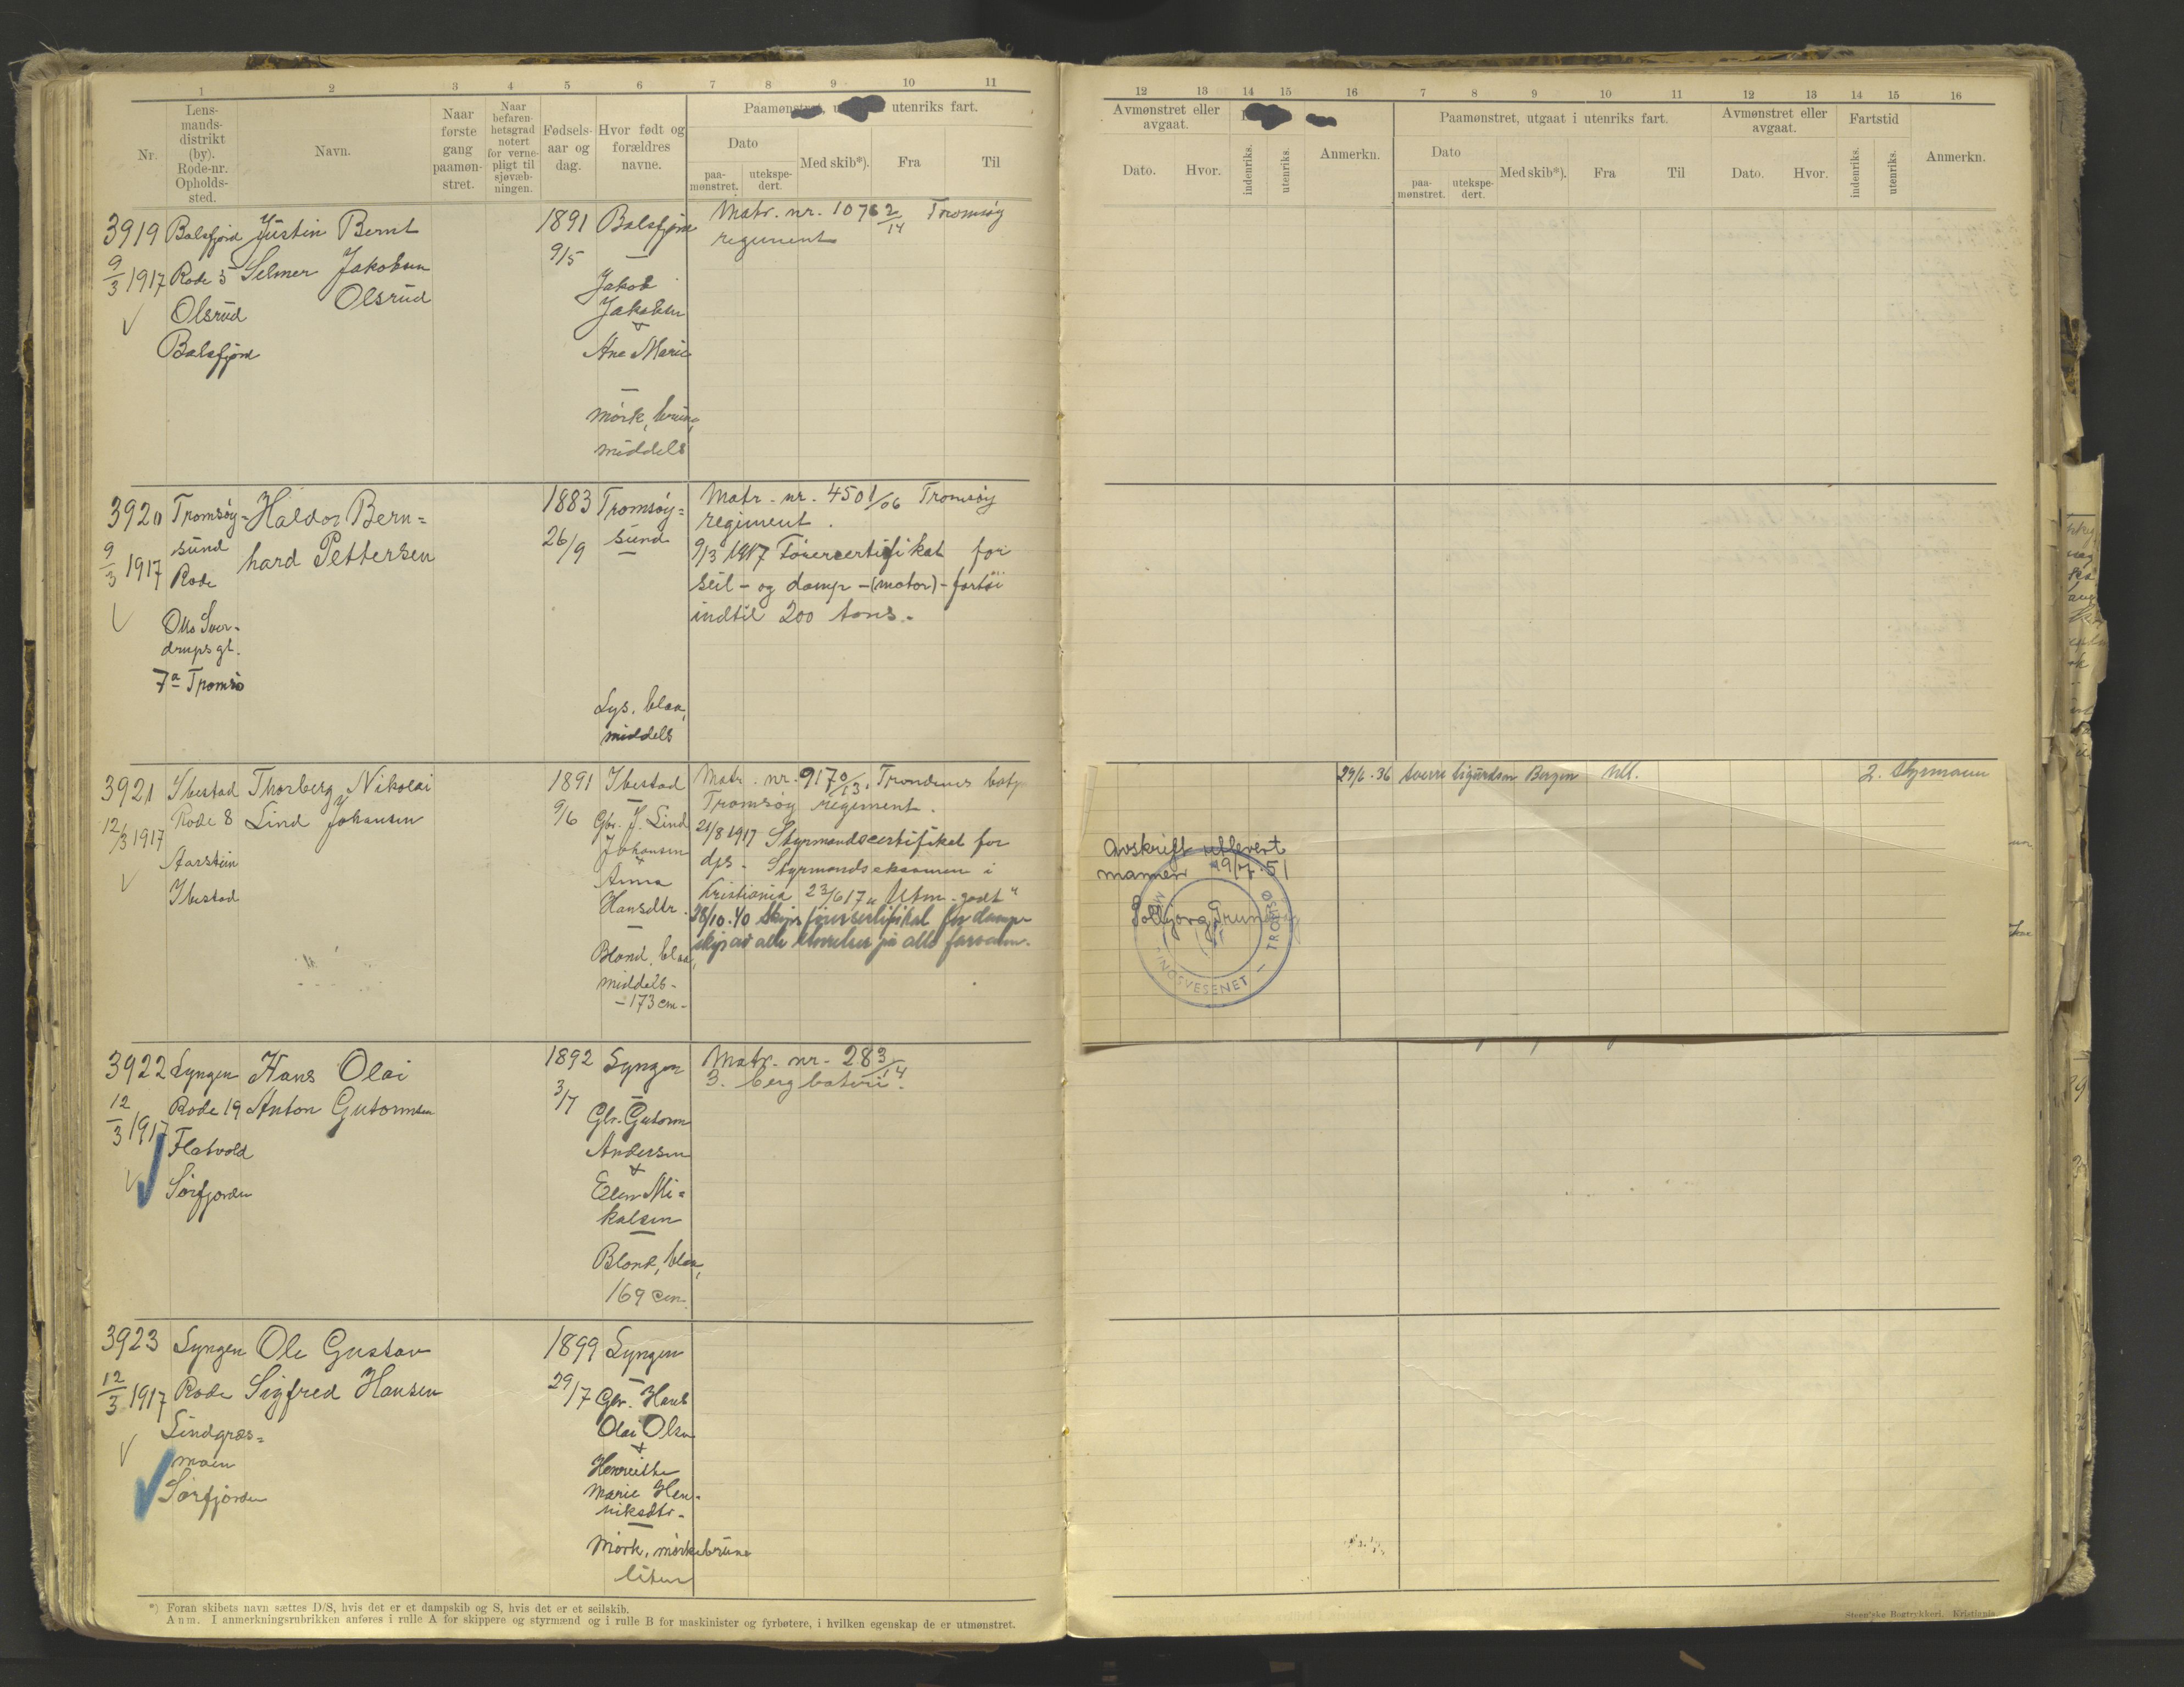 1 2 3 4 5 6 7 8 9 10 11
Nr.
Lens-
mands-
distrikt
(by).
Rode-nr.
Opholds-
sted.
Navn.
Naar
første
gang
paamøn-
stret.
Naar
befaren-
hetsgrad
notert
for verne-
pligt til
sjøvæb-
ningen.
Fødsels-
aar og
dag.
Hvor født og
forældres
navne.
Paamønstret, utenriks fart.
Dato
paa-
mønstret.
utekspe-
dert.
Med skib*).
Fra
Til
3919
9/3 1917
Balsfjord
Rode 5
Olsrud
Balsfjord
Justin Bernt
Selmer Jakobsen
Olsrud
1891
9/5
Balsfjord
Jakob
Jakobsen
+
Ane Marie
Mørk, brune,
middels
Matr. nr. 1076 2/14 Tromsøy
regiment
3920
9/3 1917
Tromsøy-
sund
Rode
Otto Sver-
drups gt.
7a Tromsø
Haldor Bern=
hard Pettersen
1883
26/9
Tromsøy=
sund
Lys, blaa,
middels
Matr. nr. 450 1/06 Tromsøy
regiment.
9/3 1917 Førercertifikat for
seil- og damp-(motor)-fartøi
indtil 200 tons.
3921
12/3 1917
Ibestad
Rode 8
Aarstein
Ibestad
Thorberg Nikolai
Lind Johansen
1891
9/6
Ibestad
Gbr. J. Lind
Johansen
+
Anna
Hansdtr.
Blond, blaa,
middels-
-173 cm-
Matr. nr. 917 0/13, Trondenes batj.
Tromsøy regiment.
21/8 1917 Styrmandscertifikat for
dps. Styrmandseksamen i
Kristiania 23/6 17 „Utm. godt"
28/10.40 Skipsførersertifikat for damp-
skip av alle størrelser på alle farvann.
3922
12/3 1917
Lyngen
Rode 19
Flatvold
Sørfjorden
Hans Olai
Anton Gutormsen
1892
3/7
Lyngen
Gbr. Gutorm
Andersen
+
Elen Mi=
kalsen
Blond, blaa,
169 cm.
Matr. nr. 283/14
3. bergbatteri.
3923
12/3 1917
Lyngen
Rode
Lindgræs=
moen
Sørfjorden
Ole Gustav
Sigfred Hansen
1899
29/7
Lyngen
Gbr. Hans
Olai Olsen
+
Henriette
Marie Hen-
riksdtr.
Mørk, mørkebrune
liten
*) Foran skibets navn sættes D/S, hvis det er et dampskib og S, hvis det er et seilskib.
Anm. I anmerkningsrubrikken anføres i rulle A for skippere og styrmænd og i rulle B for maskinister og fyrbøtere, i hvilken egenskap de er utmønstret.
12 13 14 15 16 7 8 9 10 11 12 13 14 15 16
Avmønstret eller
avgaat.
Dato.
Hvor.
indenriks.
utenriks.
Anmerkn.
Paamønstret, utgaat i utenriks fart.
Dato
paa-
mønstret.
utekspe-
dert.
Med skib*).
Fra
Til
Avmønstret eller
avgaat.
Dato.
Hvor.
Fartstid
indenriks.
utenriks.
Anmerkn.
29/6.36 Sverre Sigurdson Bergen Utl. 2. Styrmann
Avskrift utlevert
mannen 19/7.51
Solbjørg
INGSVESENET — TROMSØ
Steen'ske Bogtrykkeri. Kristiania